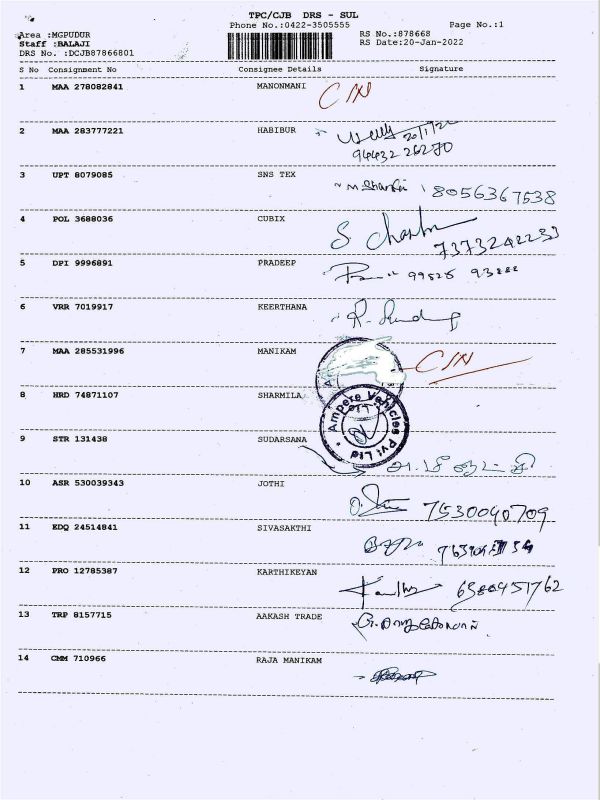 TPC/CJB DRS - SUL
Phone No.:0422-3505555 Page No.:1
Area :MGPUDUR RS No.:878668
Staff :BALAJI RS Date:20-Jan-2022
DRS No. :DCJB87866801
S No Consignment No Consignee Details Signature
1 MAA 278082841 MANONMANI CIN
2 MAA 283777221 HABIBUR 20/1/22
94432 26270
3 UPT 8079085 SNS TEX 8056367538
4 POL 3688036 CUBIX S
7373242233
5 DPI 9996891 PRADEEP
6 VRR 7019917 KEERTHANA
7 MAA 285531996 MANIKAM CIN
8 HRD 74871107 SHARMILA
Ampere Vehicles Pvt Ltd
9 STR 131438 SUDARSANA
10 ASR 530039343 JOTHI 7530040709
11 EDQ 24514841 SIVASAKTHI
12 PRO 12785387 KARTHIKEYAN 6380451762
13 TRP 8157715 AAKASH TRADE
14 CMM 710966 RAJA MANIKAM